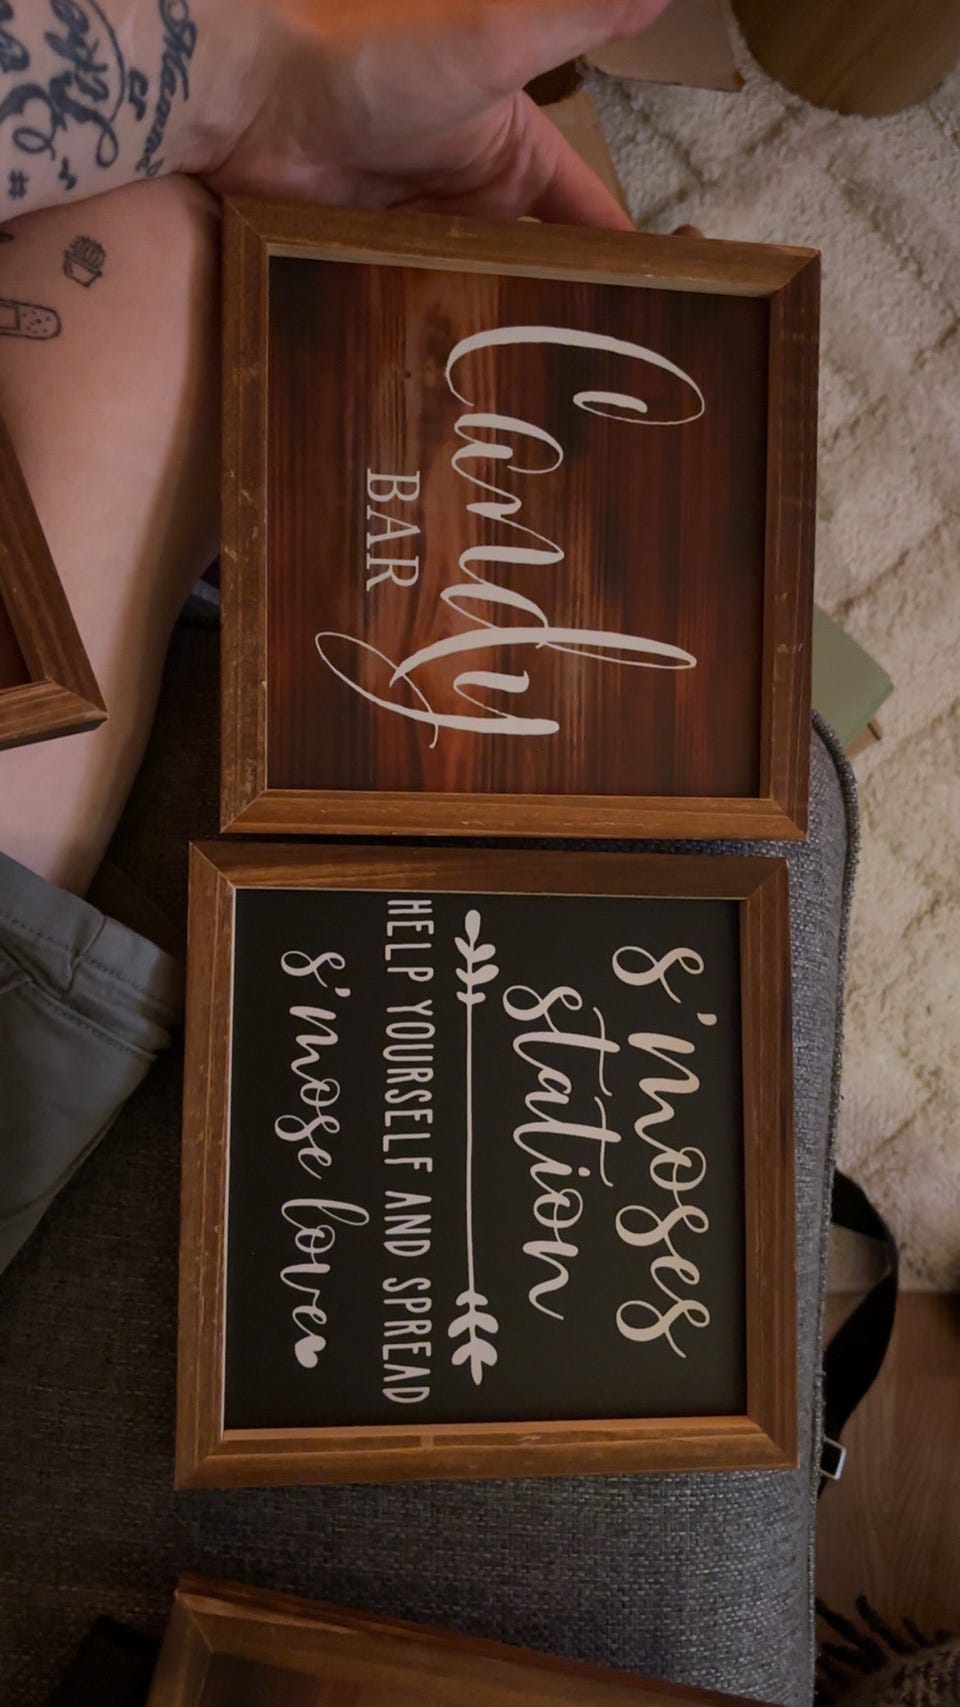 Candy
BAR
s'moses
station
HELP YOURSELF AND SPREAD
s'mose love